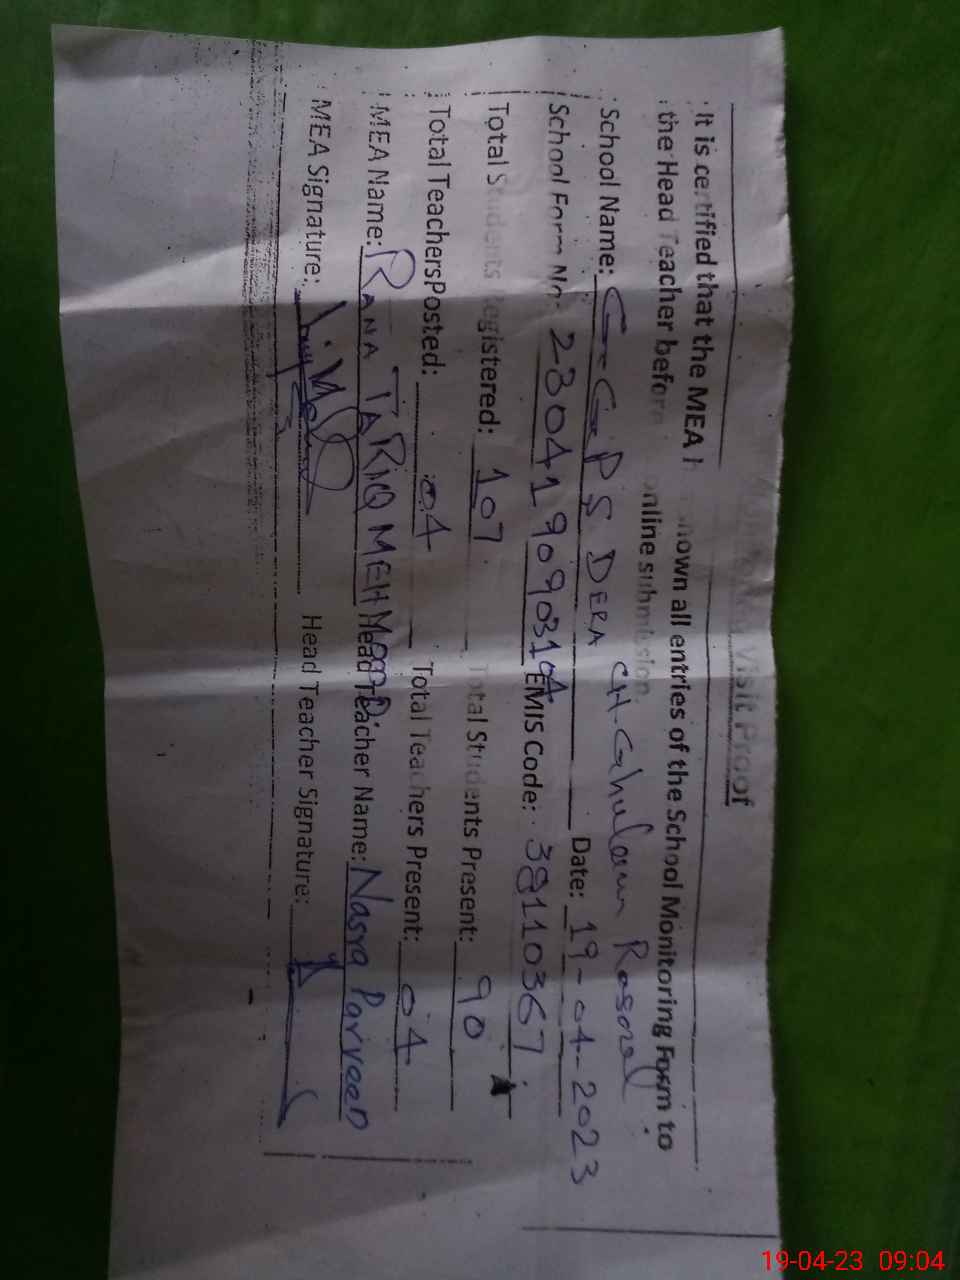 Visit Proof
It is certified that the MEA shown all entries of the School Monitoring Form to
the Head Teacher before online submission
School Name: G-G-P S DERA CH-Ghulam Rasool Date: 19-04-2023
School Form No: 23041909031 EMIS Code: 38110367
Total Students Registered: 107 Total Students Present: 90
Total TeachersPosted: 04 Total Teachers Present: 04
MEA Name: RANA TARIQ MEHMOOD Head Teacher Name: Nasra Parveen
MEA Signature: Head Teacher Signature:
19-04-23 09:04